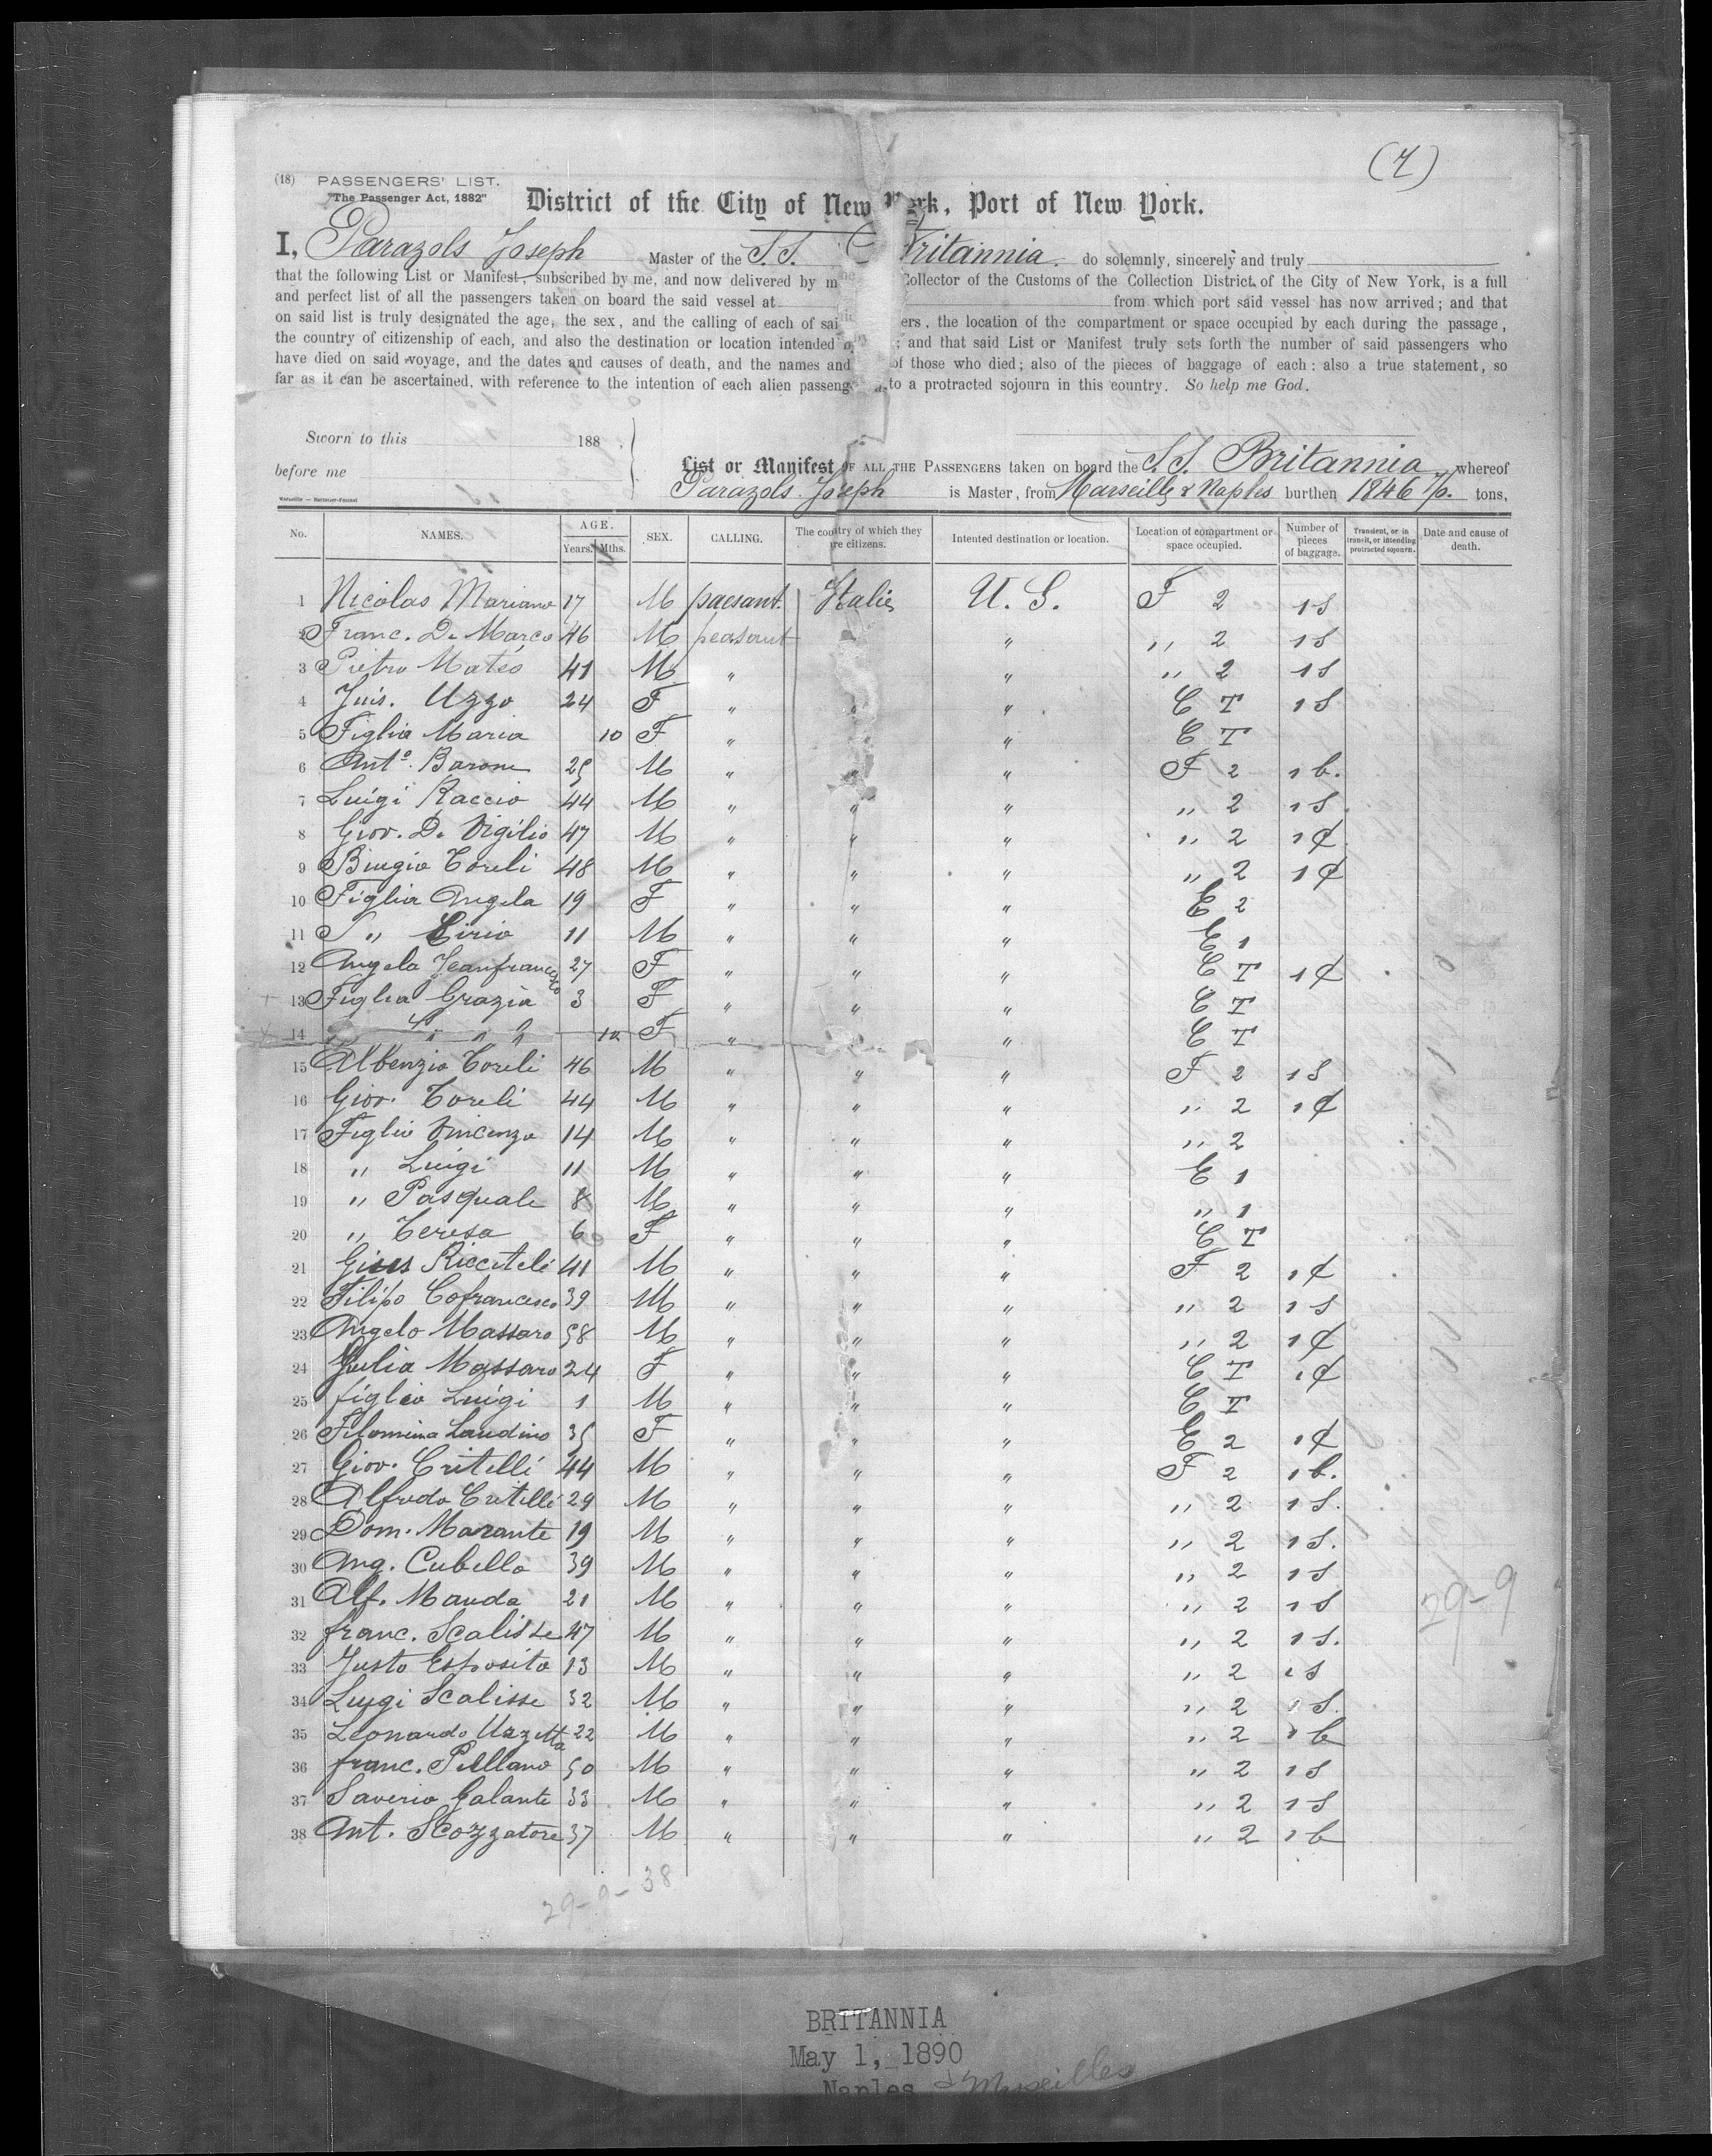 (7)
(18) PASSENGERS' LIST.
"The Passenger Act, 1882"
District of the City of New York, Port of New York.
I, Parazols Joseph Master of the S.S. Britannia do solemnly, sincerely and truly
that the following List or Manifest, subscribed by me, and now delivered by me Collector of the Customs of the Collection District of the City of New York, is a full
and perfect list of all the passengers taken on board the said vessel at from which port said vessel has now arrived; and that
on said list is truly designated the age, the sex, and the calling of each of sai ers, the location of the compartment or space occupied by each during the passage,
the country of citizenship of each, and also the destination or location intended ; and that said List or Manifest truly sets forth the number of said passengers who
have died on said voyage, and the dates and causes of death, and the names and of those who died; also of the pieces of baggage of each: also a true statement, so
far as it can be ascertained, with reference to the intention of each alien passeng to a protracted sojourn in this country. So help me God.
Sworn to this 188
before me
List or Manifest OF ALL THE PASSENGERS taken on board the S.S. Britannia whereof
Parazols Joseph is Master, from Marseille & Naples burthen 1846 tons,
No. NAMES. AGE. Years. Mths. SEX. CALLING. The country of which they are citizens. Intented destination or location. Location of compartment or space occupied. Number of pieces of baggage. Transient, or in transit, or intending protracted sojourn. Date and cause of death.
1 Nicolas Mariano 17 M paesant. Italie U. S. F 2 1 S
2 Franc. Di Marco 46 M peasant " " 2 1 S
3 Pietro Mateo 41 M " " " 2 1 S
4 Juis. Uzzo 24 F " " " C T 1 S
5 Figlia Maria 10 F " " C T
6 Anto. Barone 25 M " " " F 2 1 b.
7 Luigi Raccio 44 M " " " " 2 1 S
8 Giov. Di Vigilio 47 M " " " " 2 1 ₵
9 Biagio Coreli 48 M " " " " 2 1 ₵
10 Figlia Angela 19 F " " " E 2
11 " Cirio 11 M " " " E 1
12 Angela Jeanfrancesco 27 F " " " C T 1 ₵
13 Figlia Grazia 3 F " " " C T
14 " " " F " " C T
15 Albenzio Coreli 46 M " " " F 2 1 S
16 Giov. Coreli 44 M " " " " 2 1 ₵
17 Figlio Vincenzo 14 M " " " " 2
18 " Luigi 11 M " " " E 1
19 " Pasquale 8 M " " " " 1
20 " Ceresa 6 F " " " C T
21 Gius Ricciteli 41 M " " " F 2 1 ₵
22 Filipo Cofrancesco 39 M " " " " 2 1 S
23 Angelo Massaro 58 M " " " " 2 1 ₵
24 Julia Massaro 24 F " " " C T 1 ₵
25 figlio Luigi 1 M " " " C T
26 Filomina Laudino 35 F " " " E 2 1 ₵
27 Giov. Critelli 44 M " " " F 2 1 b.
28 Alfredo Critelli 29 M " " " " 2 1 S.
29 Dom. Marante 19 M " " " " 2 1 S.
30 Ang. Cubello 39 M " " " " 2 1 S
31 Alf. Manda 21 M " " " " 2 1 S
29-9
32 franc. Scalisse 47 M " " " " 2 1 S.
33 Justo Esposito 13 M " " " " 2 1 S
34 Luigi Scalisse 32 M " " " " 2 1 S.
35 Leonardo Uzzetta 22 M " " " " 2 1 b
36 franc. Pullano 50 M " " " " 2 1 S
37 Saverio Galante 33 M " " " " 2 1 S
38 Ant. Scozzatore 37 M " " " " 2 1 b
29-9-38
BRITANNIA
May 1, 1890
Naples & Marseilles